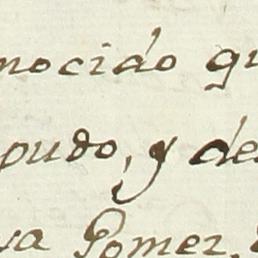 nocido qu
pudo, y de
va Pomer.